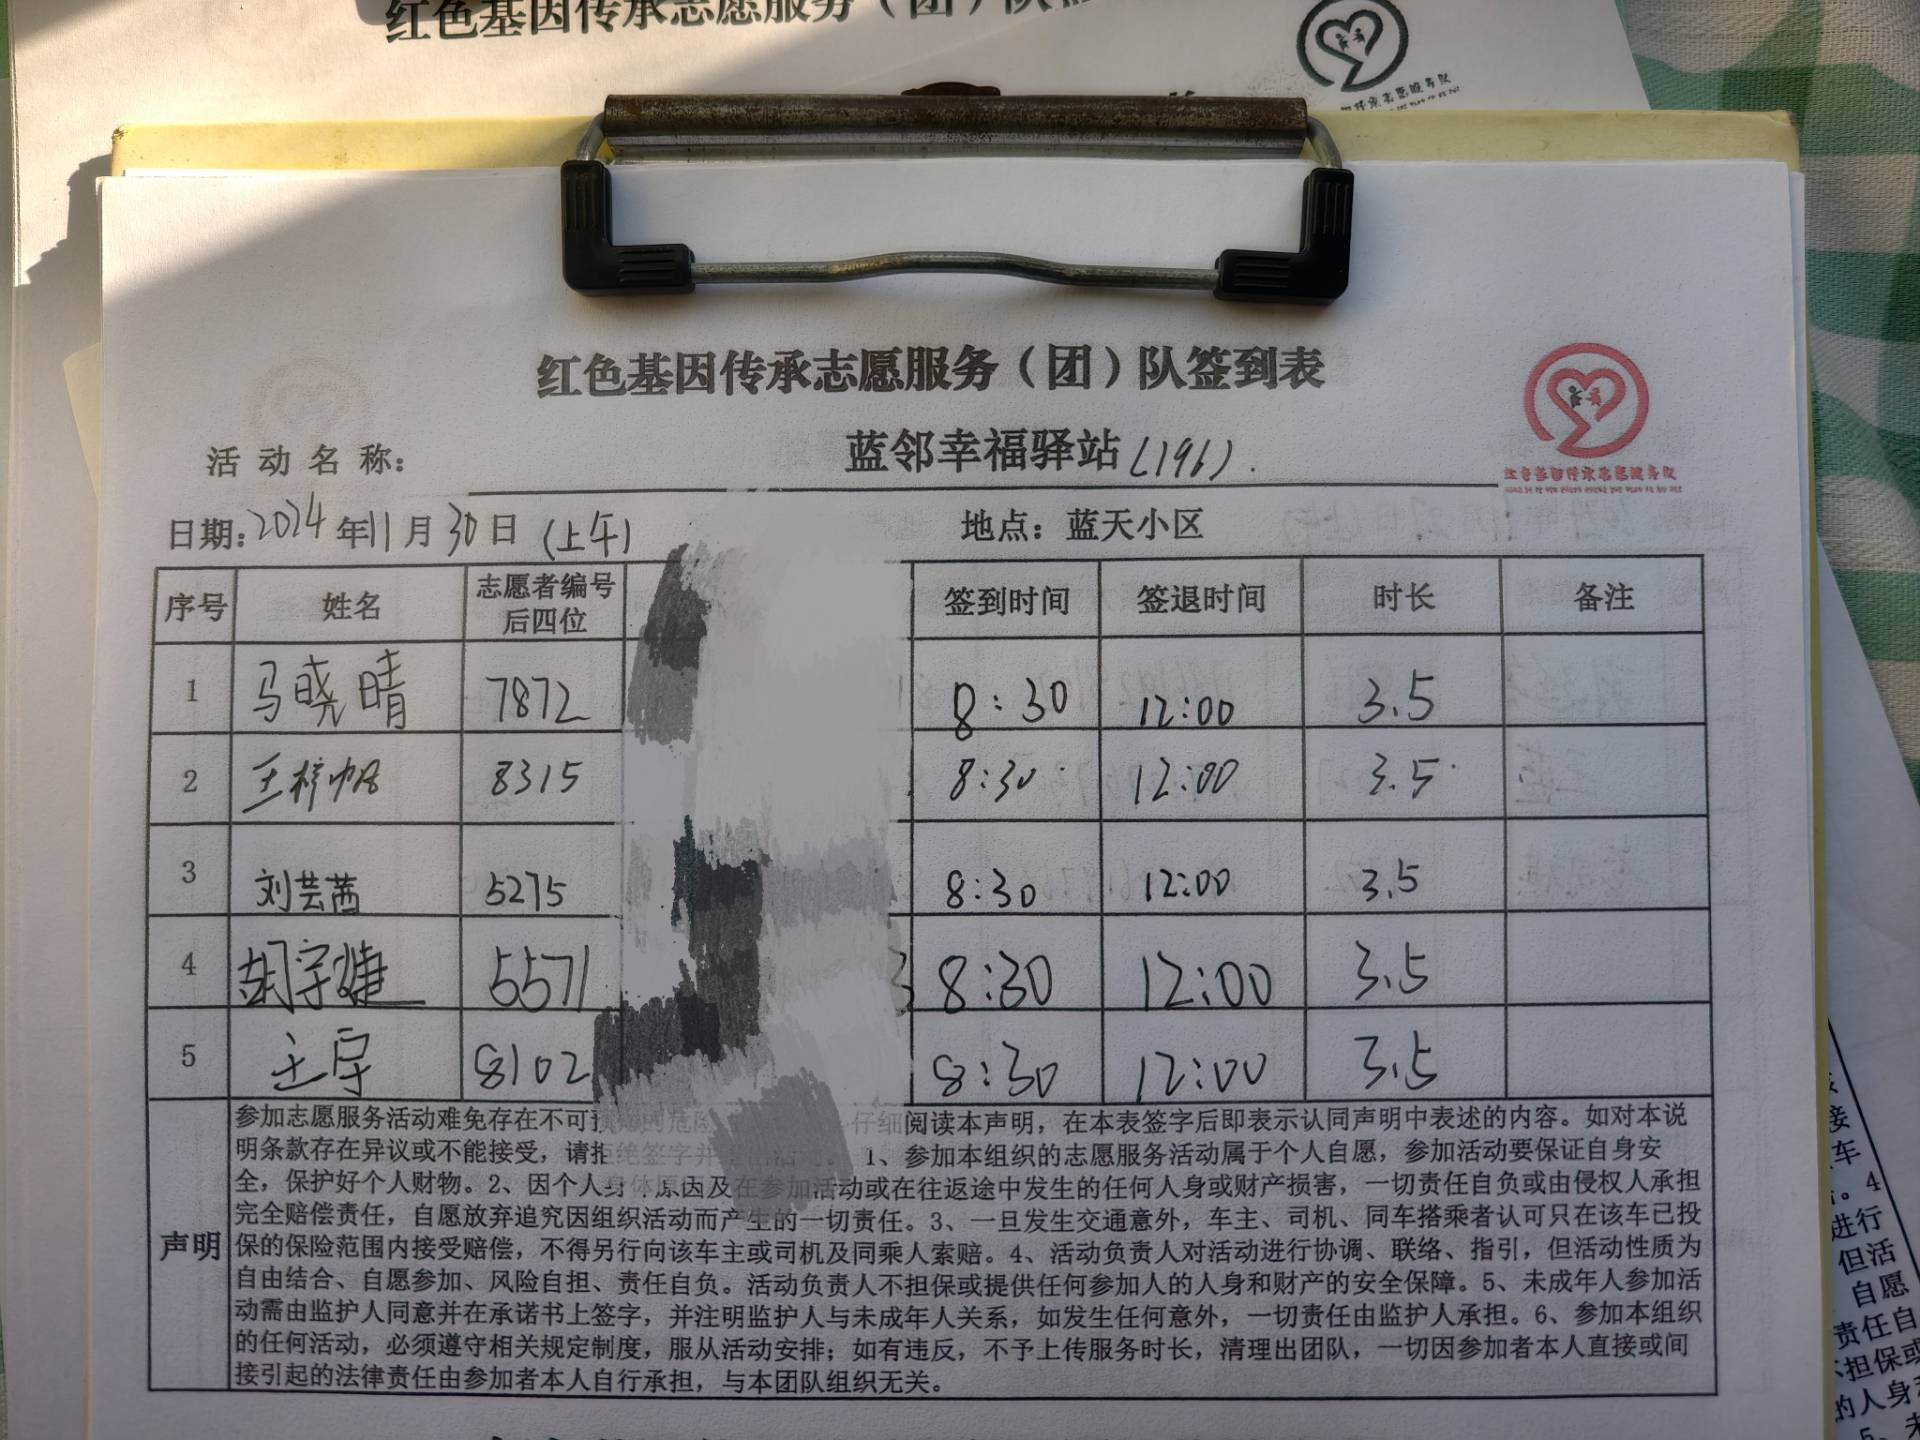 红色基因传承志愿服务（团）队签到表
活动名称： 蓝邻幸福驿站(196).
日期:2024年11月30日(上午) 地点：蓝天小区
序号 姓名 志愿者编号后四位 签到时间 签退时间 时长 备注
1 马晓晴 7872 8:30 12:00 3.5
2 王梓帆 8315 8:30 12:00 3.5
3 刘芸茜 5275 8:30 12:00 3.5
4 胡宇婕 5571 8:30 12:00 3.5
5 王宇 8102 8:30 12:00 3.5
声明
参加志愿服务活动难免存在不可 的危险 仔细阅读本声明，在本表签字后即表示认同声明中表述的内容。如对本说
明条款存在异议或不能接受，请拒绝签字并 1、参加本组织的志愿服务活动属于个人自愿，参加活动要保证自身安
全，保护好个人财物。2、因个人身体原因及在参加活动或在往返途中发生的任何人身或财产损害，一切责任自负或由侵权人承担
完全赔偿责任，自愿放弃追究因组织活动而产生的一切责任。3、一旦发生交通意外，车主、司机、同车搭乘者认可只在该车已投
保的保险范围内接受赔偿，不得另行向该车主或司机及同乘人索赔。4、活动负责人对活动进行协调、联络、指引，但活动性质为
自由结合、自愿参加、风险自担、责任自负。活动负责人不担保或提供任何参加人的人身和财产的安全保障。5、未成年人参加活
动需由监护人同意并在承诺书上签字，并注明监护人与未成年人关系，如发生任何意外，一切责任由监护人承担。6、参加本组织
的任何活动，必须遵守相关规定制度，服从活动安排；如有违反，不予上传服务时长，清理出团队，一切因参加者本人直接或间
接引起的法律责任由参加者本人自行承担，与本团队组织无关。